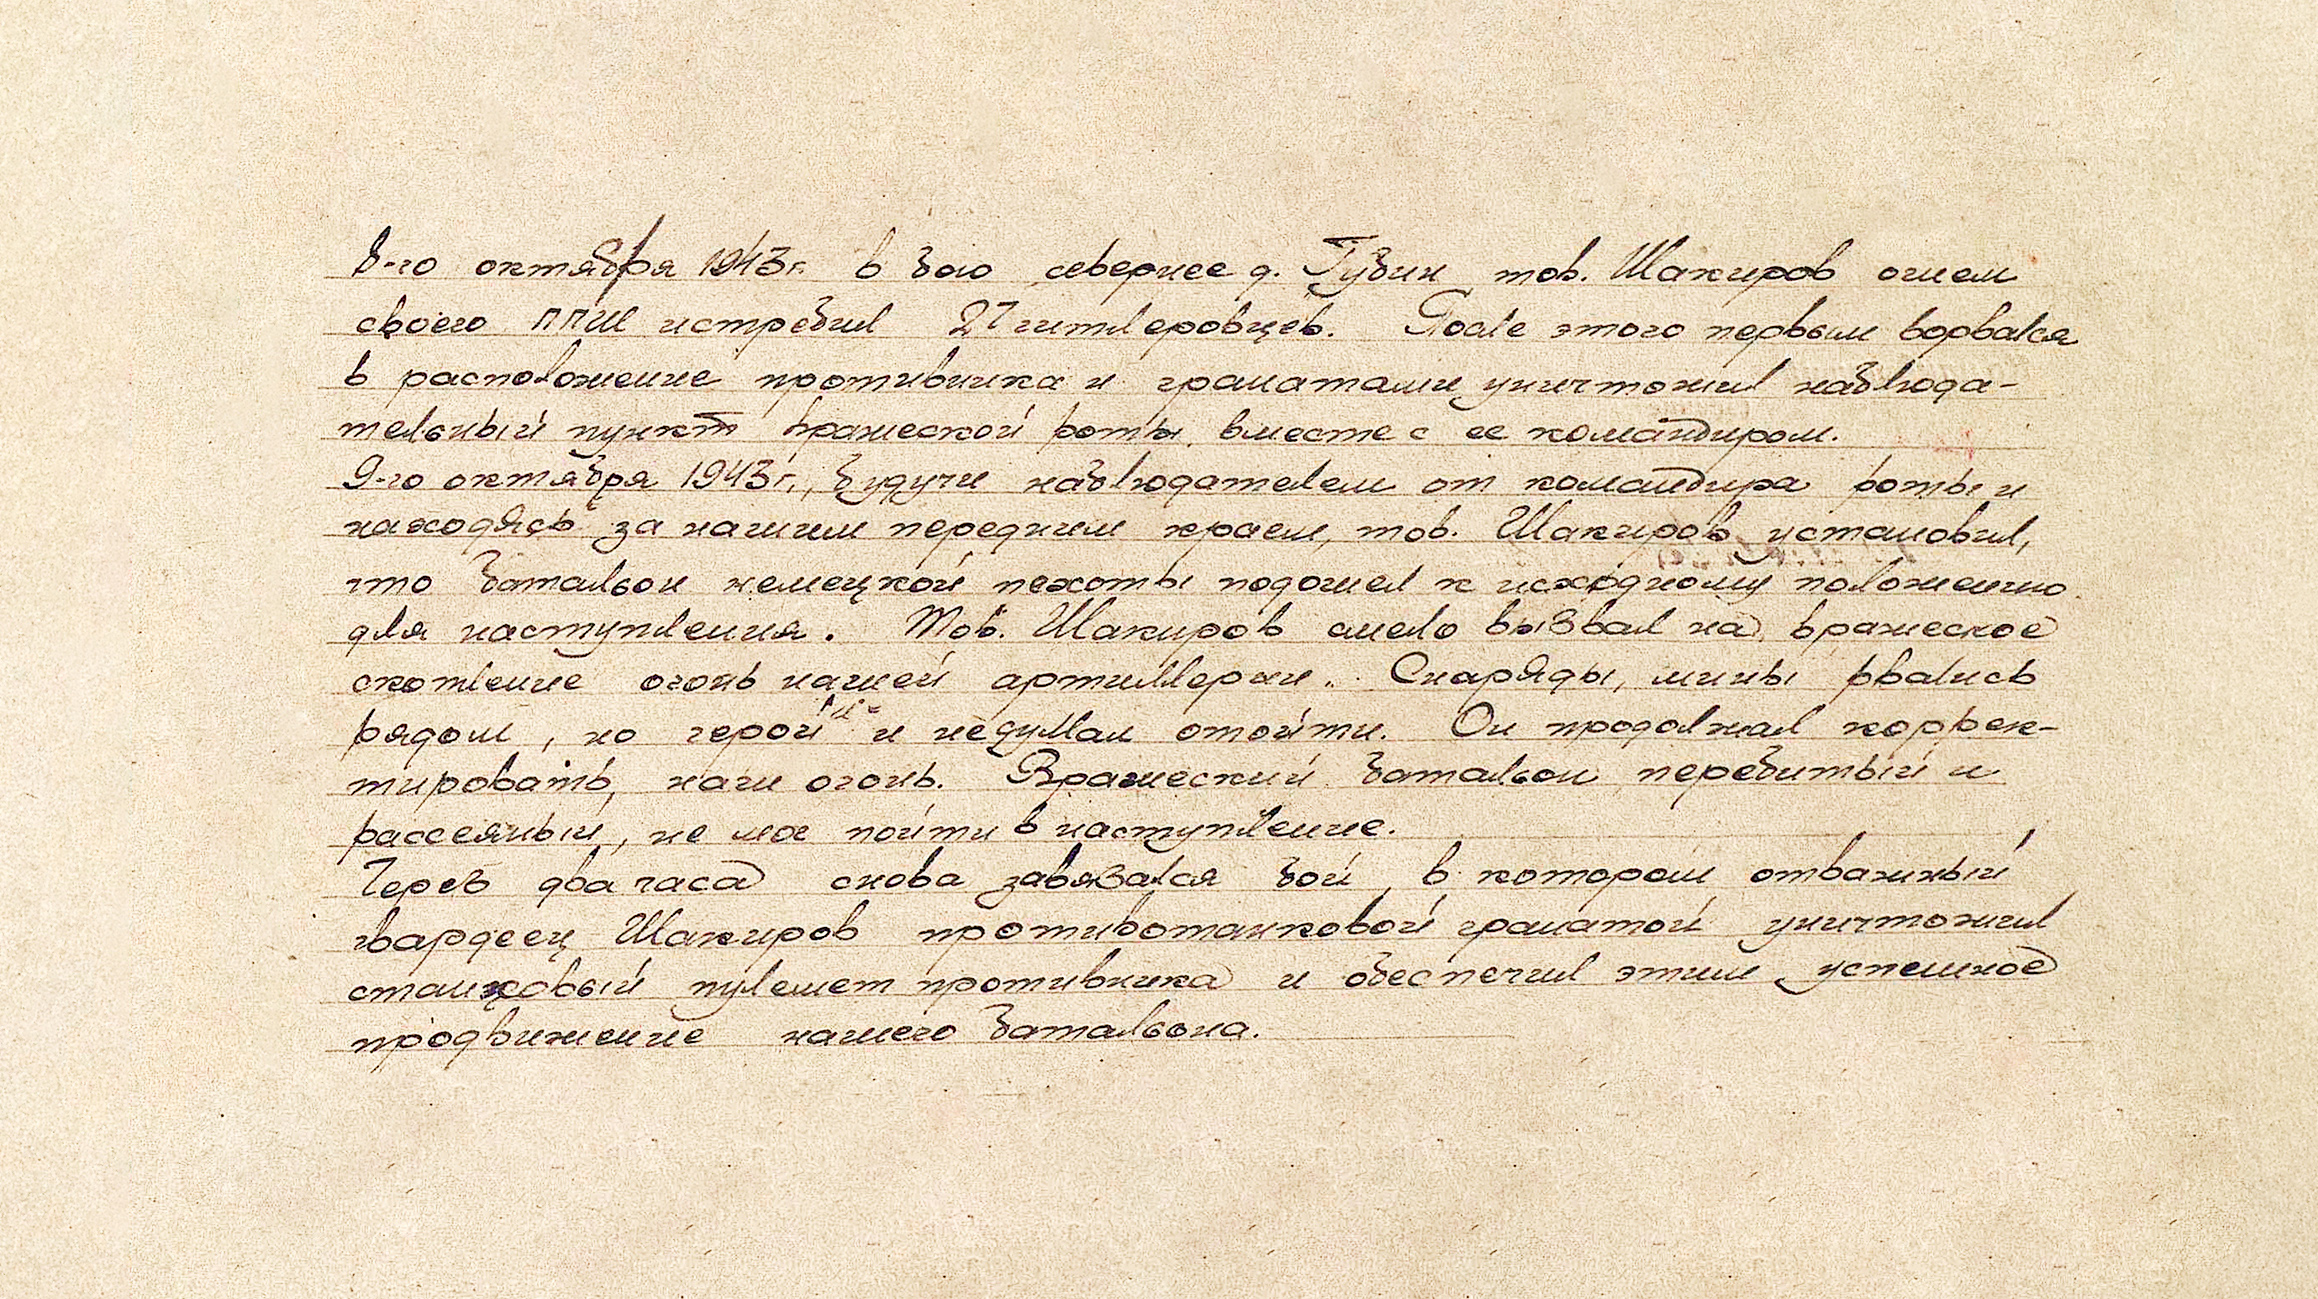 8-го октября 1943г. в бою севернее д. Губин тов. Шакиров огнем
своего ППШ истребил 27 гитлеровцев. После этого первым ворвался
в расположение противника и гранатами уничтожил наблюда-
тельный пункт вражеской роты вместе с ее командиром.
9-го октября 1943г., будучи наблюдателем от командира роты и
находясь за нашим передним краем, тов. Шакиров установил,
что батальон немецкой пехоты подошел к исходному положению
для наступления. Тов. Шакиров смело вызвал на вражеское
скопление огонь нашей артиллерии. Снаряды, мины рвались
рядом, но герой и недумал отойти. Он продолжал коррек-
тировать, наш огонь. Вражеский батальон, перебитый и
рассеяный, не мог пойти в наступление.
Через два часа снова завязался бой, в котором отважный
гвардеец Шакиров противотанковой гранатой уничтожил
станковый пулемет противника и обеспечил этим успешное
продвижение нашего батальона.